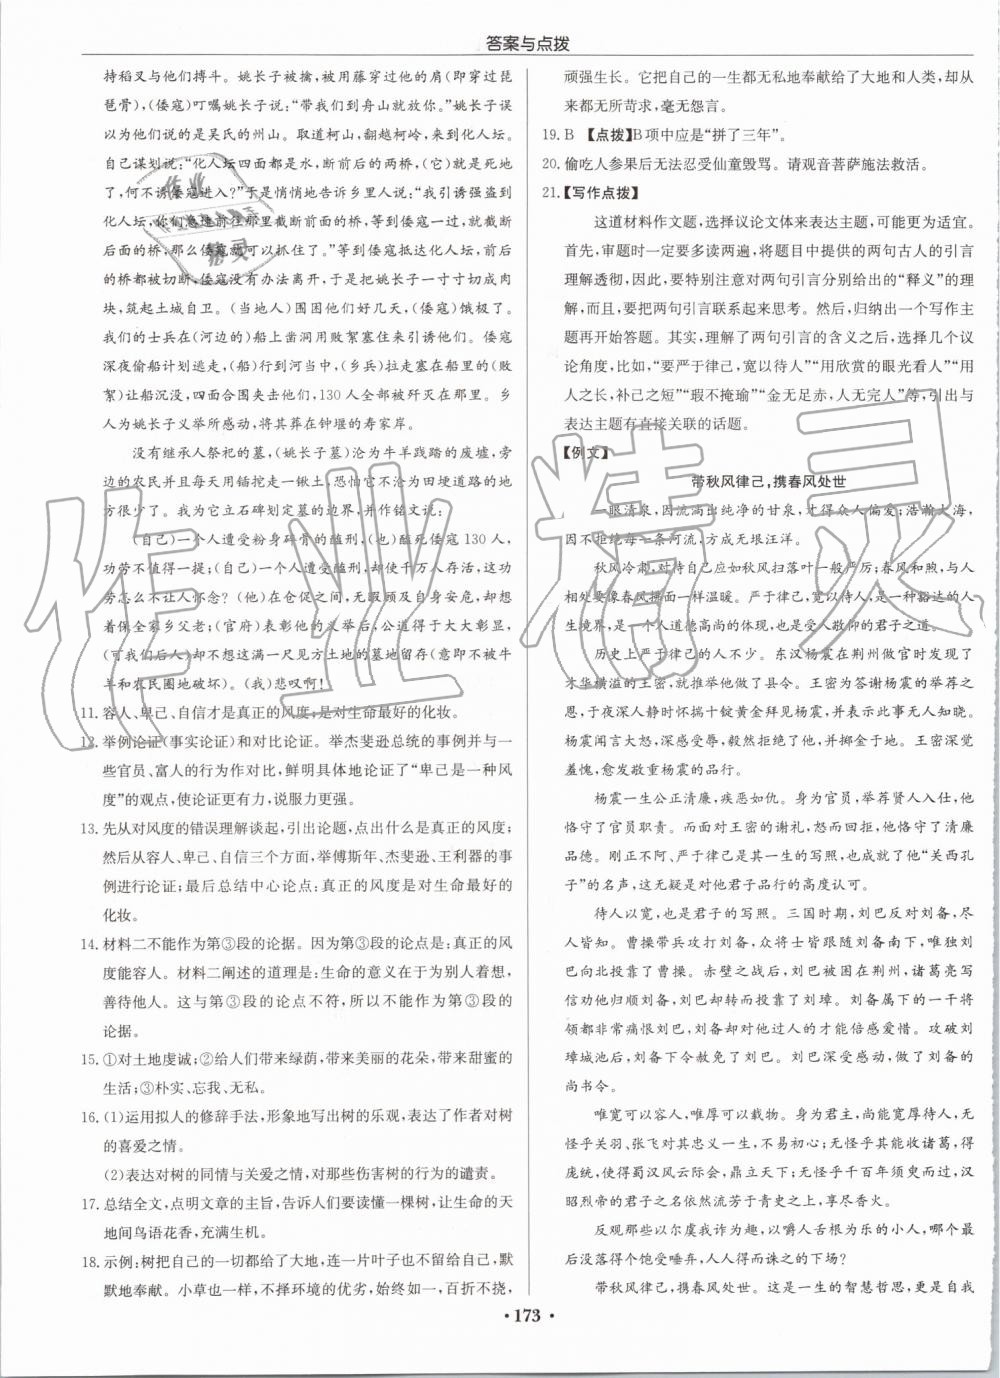 答案与点拨
持稻叉与他们搏斗。姚长子被擒，被用藤穿过他的肩(即穿过琵
琶骨)，(倭寇)叮嘱姚长子说：“带我们到舟山就放你。”姚长子误
以为他们说的是吴氏的州山。取道柯山，翻越柯岭，来到化人坛。
自己谋划说：“化人坛四面都是水，断前后的两桥，(它)就是死地了，
何不诱倭寇进入?”于是悄悄地告诉乡里人说：“我引诱强盗到
化人坛，你们急速前往截断前面的桥，等到倭寇过去，就截断后
面的桥，那么倭寇就可以擒住了。”等到倭寇抵达化人坛，前后
的桥都被切断，倭寇没有办法离开，于是把姚长子一寸寸切成肉
块，筑起土城自卫。(当地人)围困他们好几天，(倭寇)饿极了。
我们的士兵在(河边的)船上凿洞用败絮塞住来引诱他们。倭寇
深夜偷船计划逃走，(船)行到河中，(乡兵)拉走在船里的(败
絮)让船沉没，四面合围夹击他们，130人全部被歼灭在那里。乡
人为姚长子义举所感动，将其葬在钟堰的寿家岸。
没有继承人祭祀的墓，(姚长子墓)沦为牛羊践踏的废墟，旁
边的农民每天用锸挖走一锹土，恐怕它不沦为田埂道路的地方
不多了。我为它立石碑划定墓的边界，并作铭文说：
(自己)一个人遭受粉身碎骨的醢刑，(也)醢死倭寇130人，
功劳不值得一提；(自己)一个人遭受醢刑，却使千万人存活，这功
劳怎么不让人怀念?(他)在仓促之间，无暇顾及自身安危，却想
着保全家乡父老；(官府)表彰他的义举后，公道得于大大彰显，
(可我们却)不能保留一间房子为土地的墓地留存(意即不被牛
羊和农民圈地破坏)。(我)悲叹啊!
11. 容人、卑己、自信才是真正的风度；是对生命最好的化妆。
12. 举例论证(事实论证)和对比论证。举杰斐逊总统的事例并与一
些官员、富人的行为作对比，鲜明具体地论证了“卑己是一种风
度”的观点，使论证更有力，说服力更强。
13. 先从对风度的错误理解谈起，引出论题，点出什么是真正的风度；
然后从容人、卑己、自信三个方面，举傅斯年、杰斐逊、王利器的事
例进行论证；最后总结中心论点：真正的风度是对生命最好的
化妆。
14. 材料二不能作为第③段的论据。因为第③段的论点是：真正的风
度能容人。材料二阐述的道理是：生命的意义在于为别人着想，
善待他人。这与第③段的论点不符，所以不能作为第③段的
论据。
15. ①对土地虔诚；②给人们带来绿荫，带来美丽的花朵，带来甜蜜的
生活；③朴实、忘我、无私。
16. (1)运用拟人的修辞手法，形象地写出树的乐观，表达了作者对树
的喜爱之情。
(2)表达对树的同情与关爱之情，对那些伤害树的行为的谴责。
17. 总结全文，点明文章的主旨，告诉人们要读懂一棵树，让生命的天
地间鸟语花香，充满生机。
18. 示例：树把自己的一切都给了大地，连一片叶子也给了大地，默
默地奉献。小草也一样，不择环境的优劣，始终如一，百折不挠，
顽强生长。它把自己的一生都无私地奉献给了大地和人类，却从
来都无所苛求，毫无怨言。
19. B 【点拨】B项中应是“拼了三年”。
20. 偷吃人参果后无法忍受仙童毁骂。请观音菩萨施法救活。
21. 【写作点拨】
这道材料作文题，选择议论文体来表达主题，可能更为适宜。
首先，审题时一定要多读两遍，将题目中提供的两句古人的引言
理解透彻，因此，要特别注意对两句引言分别给出的“释义”的理
解，而且，要把两句引言联系起来思考。然后，归纳出一个写作主
题再开始答题。其实，理解了两句引言的含义之后，选择几个议
论角度，比如，“要严于律己，宽以待人”“用欣赏的眼光看人”“用
人之长，补己之短”“瑕不掩瑜”“金无足赤，人无完人”等，引出与
表达主题有直接关联的话题。
【例文】
带秋风律己，携春风处世
一眼清泉，因流淌出纯净的甘泉，才得众人偏爱；浩瀚大海，
因不拒绝每一条河流，方成无垠汪洋。
秋风冷肃，对待自己应如秋风扫落叶一般严厉；春风和煦，与人
相处要像春风拂面一样温暖。严于律己，宽以待人，是一种豁达的人
生境界，是一个人道德高尚的体现，也是受人敬仰的君子之道。
历史上严于律己的人不少。东汉杨震在荆州做官时发现了
才华横溢的王密，就推举他做了县令。王密为答谢杨震的举荐之
恩，于夜深人静时怀揣十锭黄金拜见杨震，并表示此事无人知晓。
杨震闻言大怒，深感受辱，毅然拒绝了他，并掷金于地。王密深觉
羞愧，愈发敬重杨震的品行。
杨震一生公正清廉，疾恶如仇。身为官员，举荐贤人入仕，他
恪守了官员职责。而面对王密的谢礼，怒而回拒，他恪守了清廉
品德。刚正不阿、严于律己是他一生的写照，也成就了他“关西孔
子”的名声，这无疑是对他君子品行的高度认可。
待人以宽，也是君子的写照。三国时期，刘巴反对刘备，尽
人皆知。曹操带兵攻打刘备，众将士皆跟随刘备南下，唯独刘
巴北上投靠了曹操。赤壁之战后，刘巴被困在荆州，诸葛亮写
信劝他归顺刘备，刘巴却转而投靠了刘璋。刘备属下的一干将
领都非常痛恨刘巴，刘备却对他过人的才能倍感爱惜。攻破刘
璋城池后，刘备下令赦免了刘巴。刘巴深受感动，做了刘备的
尚书令。
唯宽可以容人，唯厚可以载物。身为君主，尚能宽厚待人，无
怪乎关羽、张飞对其忠义一生，不易初心；无怪乎其能收诸葛，得
庞统，使得蜀汉风云际会，鼎立天下；无怪乎千百年须臾而过，汉
昭烈帝的君子之名依然流芳于青史之上，享尽香火。
反观那些以尔虞我诈为趣，以嚼人舌根为乐的小人，哪个最后
不是落得个饱受唾弃，人人得而诛之的下场?
带秋风律己，携春风处世。这是一生的智慧哲思，更是自我
· 173 ·